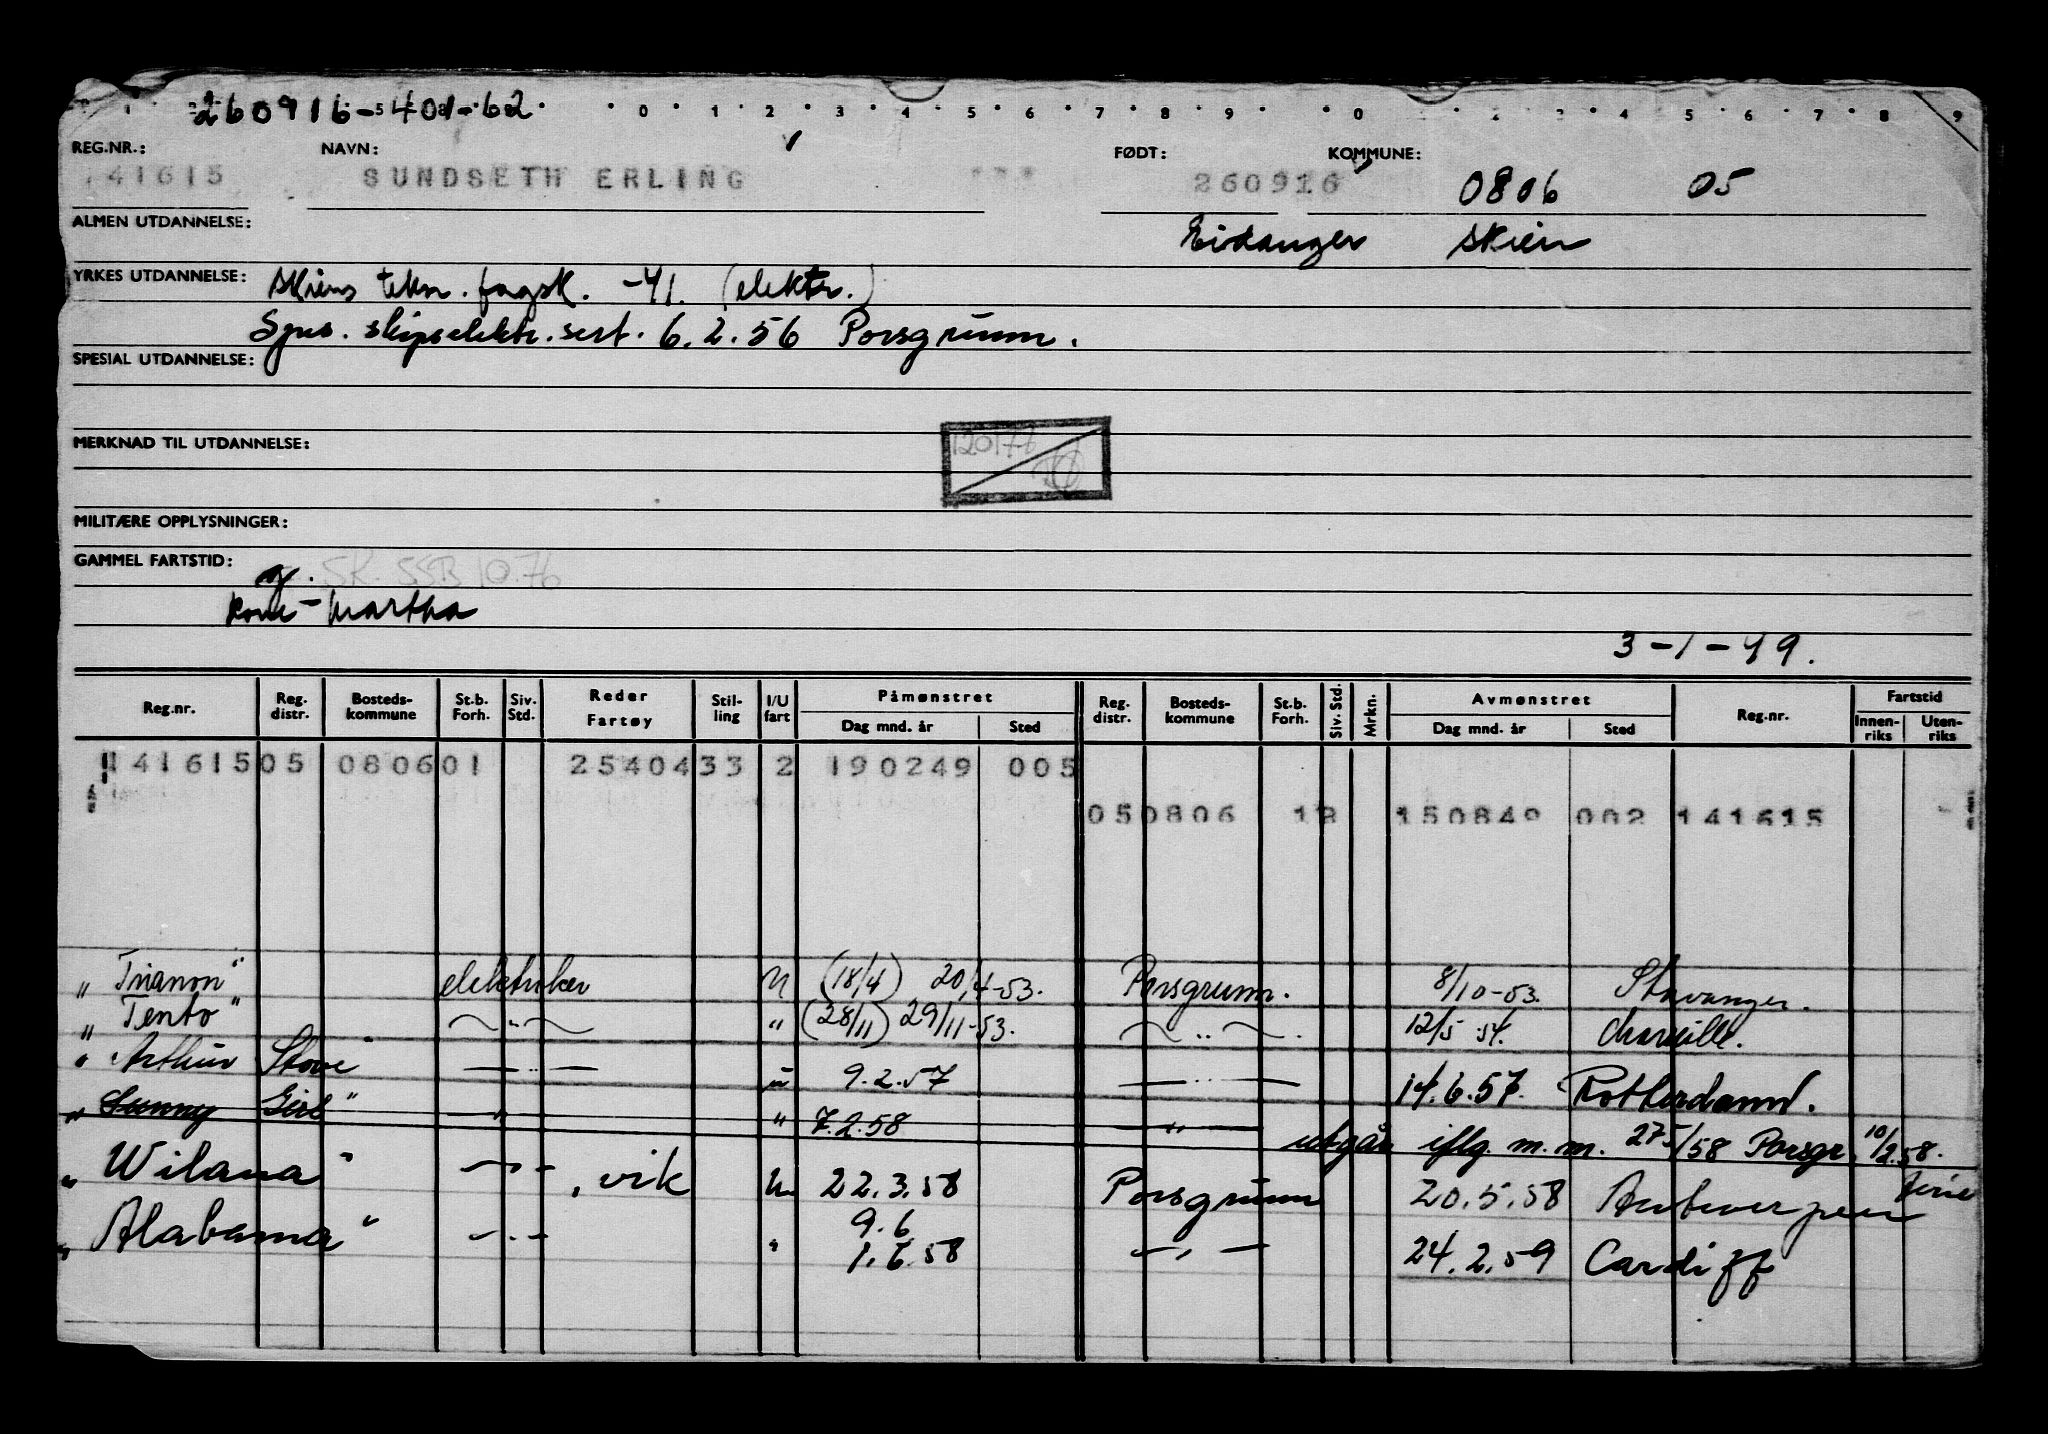 260916-401-62
0 1 2 3 4 5 6 7 8 9 0 2 3 4 5 6 7 8 9
REG.NR.: NAVN: FØDT: KOMMUNE:
141615 SUNDSETH ERLING 260916 0806 05
ALMEN UTDANNELSE: Eidanger Skien
YRKES UTDANNELSE: Skiens tekn. fagsk. -41. (elektr.)
skipselektr. sert. 6.2.56 Porsgrunn.
SPESIAL UTDANNELSE:
MERKNAD TIL UTDANNELSE:
MILITÆRE OPPLYSNINGER:
GAMMEL FARTSTID:
g. SK. SSB 10.76
kone - Martha
3-1-49.
Reg.nr. Reg. distr. Bosteds- kommune St.b. Forh. Siv. Std. Reder Fartøy Stil- ling I/U fart Påmønstret Dag mnd. år Sted Reg. distr. Bosteds- kommune St.b. Forh. Siv. Std. Mrkn. Avmønstret Dag mnd. år Sted Reg.nr. Fartstid Innen- riks Uten- riks
141615 05 0806 01 25404 33 2 190249 005
05 0806 12 150849 002 141615
"Trianon" elektriker u (18/4) 20/4-53. Porsgrunn. 8/10-53. Stavanger.
"Tento" — " — " (28/11) 29/11-53. — " — 12/5 54.
"Arthur Stove" — " — u 9.2.57 — " — 14.6.57. Rotterdam.
"Sunny Girl" — " — " 7.2.58 — " — utgår iflg. m.m. 275/58 Porsgr. 10/2.58.
"Wilana" — " — , vik u 22.3.58 Porsgrunn 20.5.58 Antwerpen ferie
"Alabama" — " — " 9.6 1.6.58 — " — 24.2.59 Cardiff